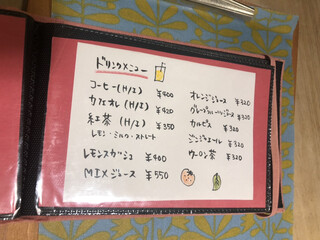 ドリンクメニュー
コーヒー(H/I) ¥400
カフェオレ(H/I) ¥420
紅茶(H/I) ¥350
レモン・ミルク・ストレート
レモンスカッシュ ¥400
MIXジュース ¥550
オレンジジュース ¥320
グレープフルーツジュース ¥320
カルピス ¥320
ジンジャーエール ¥320
ウーロン茶 ¥320